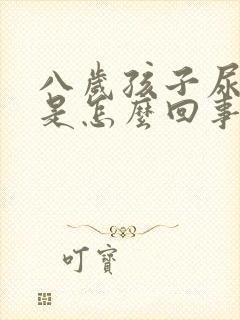 八歲孩子尿
是怎麼回事
叮寶